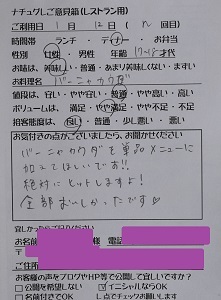 ナチュグルご意見箱(レストラン用)
ご利用日 1月12日( 回目)
時間帯 ランチ・ディナー・お弁当
性別 女性・男性 年齢 才代
お味は 美味しい・普通・あまり美味しくない・まずい
お料理名 バーニャカウダ
値段は 安い・やや安い・普通・やや高い・高い
ボリュームは 満足・やや満足・普通・やや不足・不足
接客態度は 良い・普通・少し悪い・悪い
お気付きの点がございましたら、お聞かせください
バーニャカウダを単品メニューに
加えてほしいです!!
絶対にヒットしますよ!
全部おいしかったです♡
宜しかったらご記入ください
お名前 様 電話
〒
ご住所
お客様の声をブログやHP等で公開して宜しいですか?
□公開を希望しない ☑イニシャルならOK
□名前付きでOK レ点でチェックお願いします